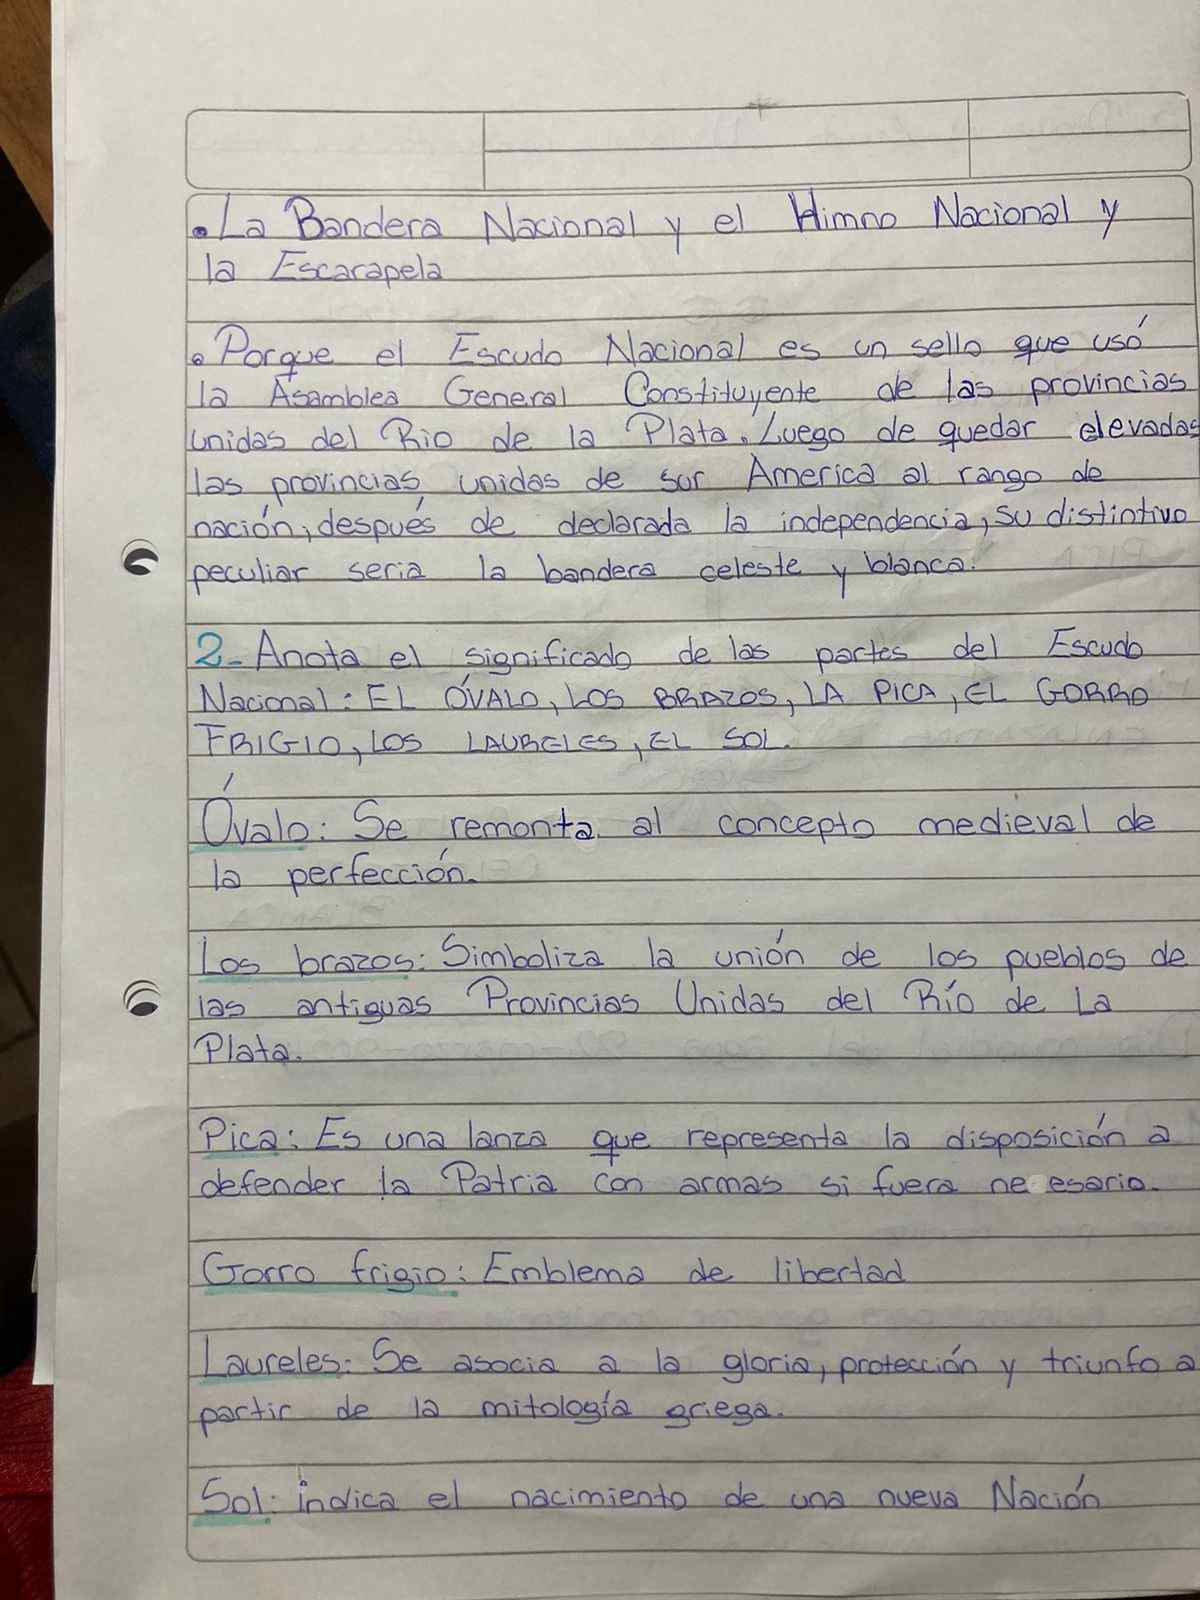 • La Bandera Nacional y el Himno Nacional y
la Escarapela
• Porque el Escudo Nacional es un sello que usó
la Asamblea General Constituyente de las provincias
unidas del Rio de la Plata. Luego de quedar elevadas
las provincias unidas de sur America al rango de
nación, después de declarada la independencia, su distintivo
peculiar seria la bandera celeste y blanca.
2- Anota el significado de las partes del Escudo
Nacional: EL ÓVALO, LOS BRAZOS, LA PICA, EL GORRO
FRIGIO, LOS LAURELES, EL SOL.
Óvalo: Se remonta al concepto medieval de
la perfección.
Los brazos: Simboliza la unión de los pueblos de
las antiguas Provincias Unidas del Río de La
Plata.
Pica: Es una lanza que representa la disposición a
defender la Patria con armas si fuera ne esario.
Gorro frigio: Emblema de libertad
Laureles: Se asocia a la gloria, protección y triunfo a
partir de la mitología griega.
Sol: indica el nacimiento de una nueva Nación